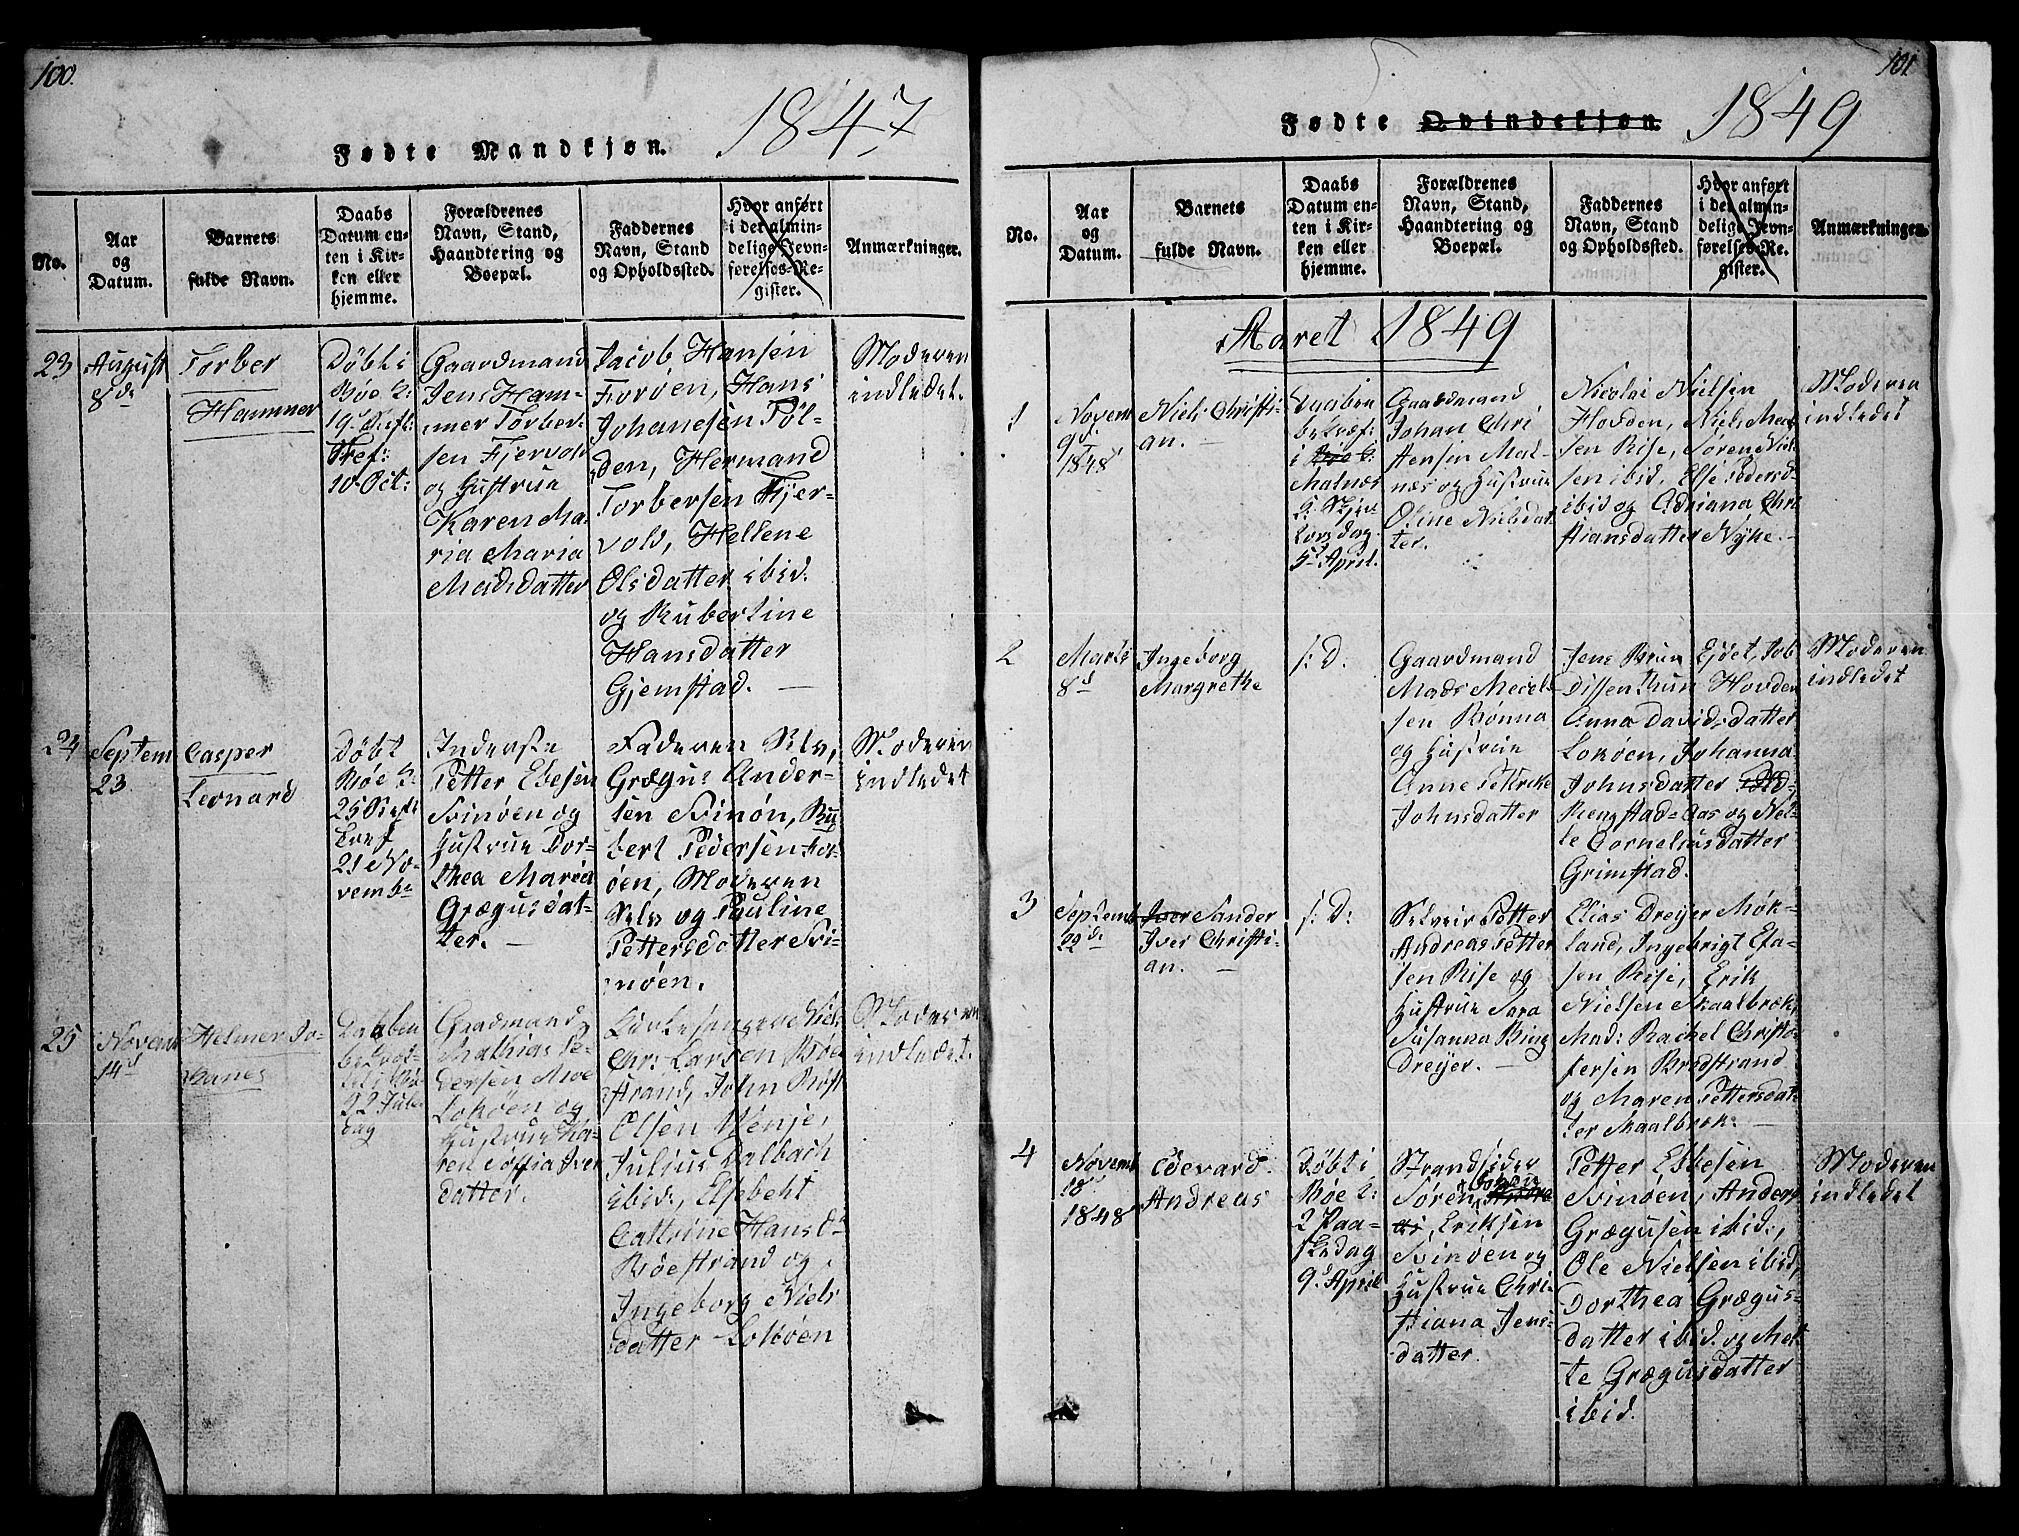 100.
1847
Fødte Mandkjøn.
No.
Aar
og
Datum.
Barnets
fulde Navn.
Daabs
Datum en-
ten i Kir-
ken eller
hjemme.
Forældrenes
Navn, Stand,
Haandtering og
Boepæl.
Faddernes
Navn, Stand
og Opholdssted.
Hvor anført
i det almin-
delige Jevn-
førelses-Re-
gister.
Anmærkninger.
23
August
8de
Torber
Hammer
Døbt i
Bøe K:
19
10 Oct:
Gaardmand
Jens Ham-
mer Torber-
sen Fjervold
og Hustrue
Karen Ma-
ria Maria
Madsdatter
Jacob Hansen
Forøen, Hans
Johanesen Pöl-
den, Hermand
Torbersen Fjer-
vold, Hellene
Olsdatter ibid.
og Rubertine
Hansdatter
Gjemstad. —
Moderen
indledet.
24
Septem
23.
Casper
Leonard
Døbt
Bøe K:
25
21 No-
vembr
Inderste
Petter Ebesen
Svinøen og
Hustrue Dor-
thea Maria
Grægusdat-
ter. —
Faderen Selv,
Grægus Ander-
sen Svinøn, Ru-
bert Pedersen For-
øen, Moderen
Selv og Pauline
Pettersdatter Svi-
nøen.
Moderen
indledet
25
Novemb
14d
Helmer Jo-
hanes
Daaben
22 Jule
dag
Gaardmand
Mathias Pe-
dersen Moe
Lokøen og
Hustrue Ka-
ren Sofia Iver
datter.
Kirkesanger Niels
Chr. Larsen Bøe
strand, John Røst
Olsen Wenje,
Julius Dalbach
ibid., Elsebeht
Cattrine Hansd-
Bøestrand og
Ingeborg Niels
datter Lokøen
Moderen
indledet.
101
Fødte Qvindekjøn.
1849
No.
Aar
og
Datum.
Barnets
fulde Navn.
Daabs
Datum en-
ten i Kir-
ken eller
hjemme.
Forældrenes
Navn, Stand,
Haandtering og
Boepæl.
Faddernes
Navn, Stand
og Opholdssted.
Hvor anført
i det almin-
delige Jevn-
førelses-Re-
gister.
Anmærkningen.
Aaret 1849
1
Novem
9d
1848
Niels Christi-
an. —
Daaben
bekræf:
i Bøe K.
Malnæs
K. Skjær
torsdag
5d April.
Gaardmand
Johan Chri
stensen Mal-
næs og Hustrue
Oline Nielsdat
ter.
Nicolai Nielsen
Hovden, Niels Mad
sen Rise, Søren Niel
sen ibid, Else Pedersd
ibid og Adriana Chri
stiansdatter Nyke. —
Moderen
indledet
2
Marts
8d
Ingeborg
Margrethe
s: D:
Gaardmand
Mads Meiel-
sen Rønna
og Hustrue
Anne Petrike
Johnsdatter
Jens Brun Ejdet, Job
Dissenthun Hovden
Anna Davidsdatter
Lokøen, Johanna
Johnsdatter
Rengstad-Aas og Nel-
le Corneliusdatter
Grimstad.
Moderen
indledet
3
Septemb
22de
Iver Sander
Iver Christi-
an. —
s: D:
Selveir Petter
Andreas Petter
sen Rise og
Hustrue Sara
Susanna Bing
Dreyer. —
Elias Dreyer Møk-
land, Ingebrigt Esa-
sen Rise, Erik
Nielsen Skaalbrek,
Mad: Rachel Christo-
fersen Bredstrand
og Maren Pettersdat-
ter Skaalbrek. —
4
Novemb
18d
1848
Edevard
Andreas
Døbt i
Bøe K:
2 Paa-
skedag
9d April
Strandsider
Søren Johan
Eriksen
Svinøen og
Hustrue Chri-
stiana Jens-
datter
Petter Ebbesen
Svinøen, Anders
Grægusen ibid,
Ole Nielsen ibid,
Dorthea Grægus-
datter ibid. og Met-
te Grægusdatter
ibid.
Moderen
indledet